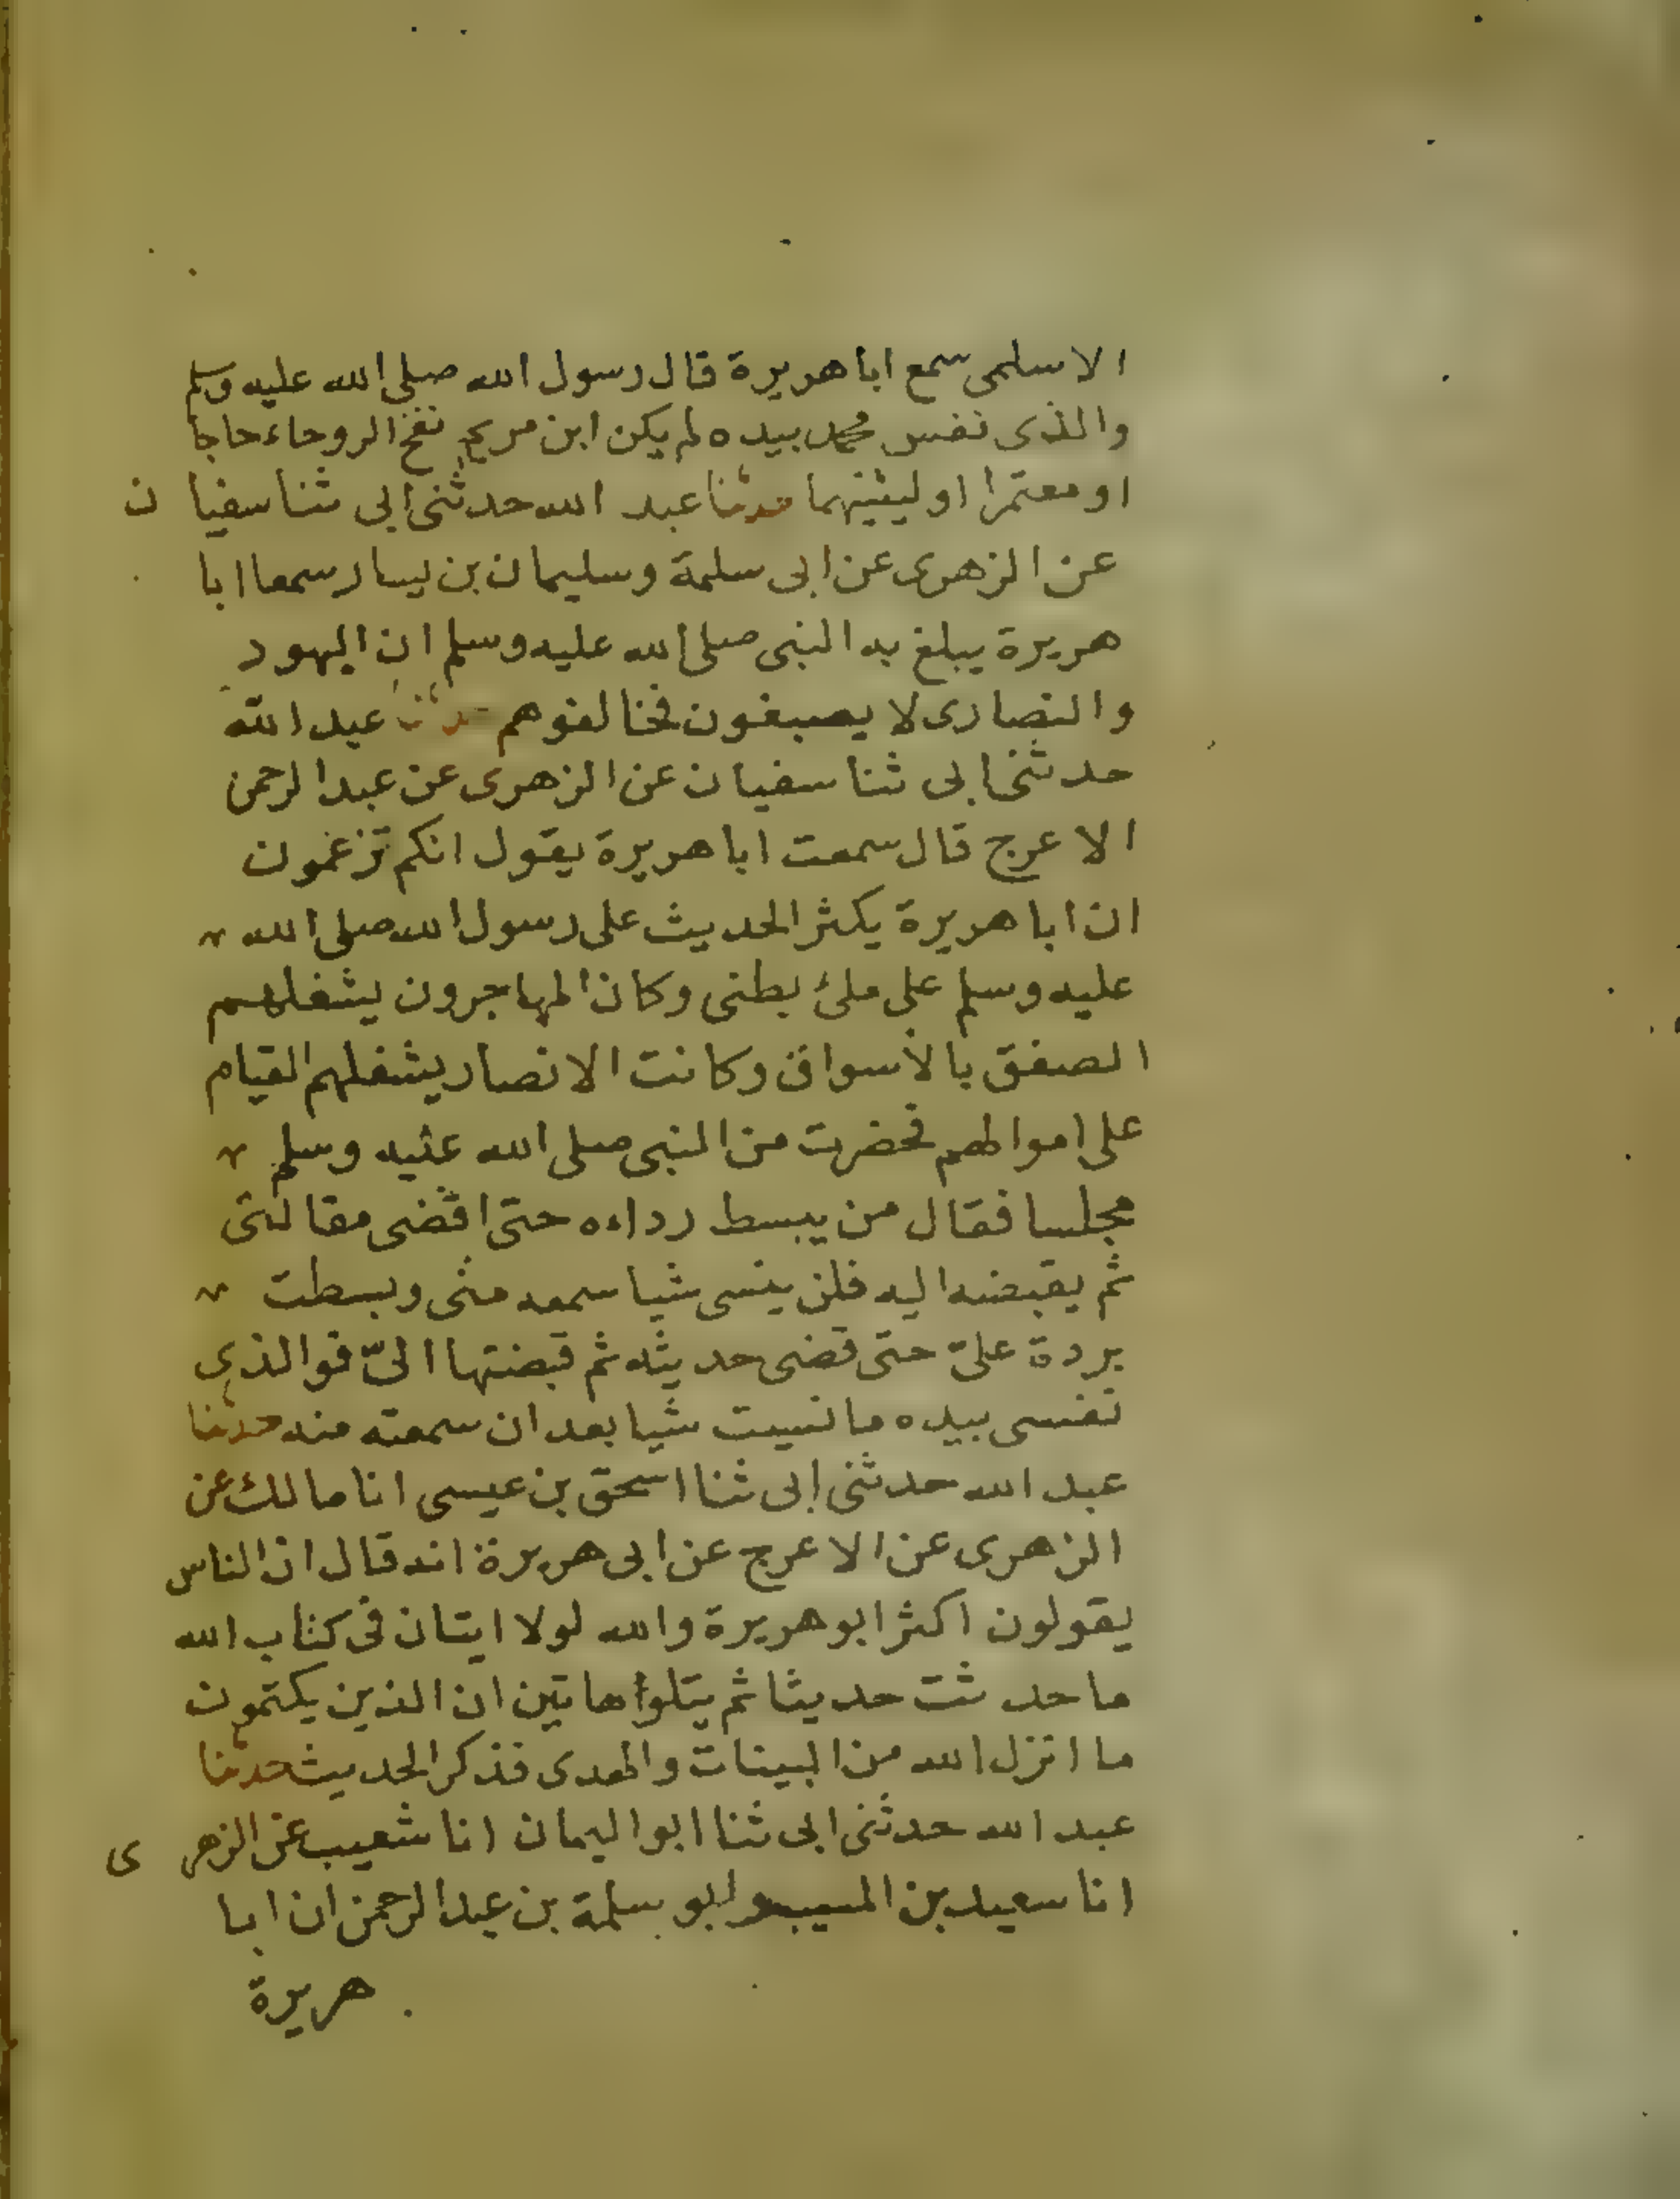 الاسلمى سمع ابا هريرة قال رسول الله صلى الله عليه وسلم
والذى نفس محمد بيده لم يكن ابن مريم نفخ الروحاء حاجا
او معتمرا او ليثنيهما حدثنا عبد الله حدثنى ابى ثنا سفيان
عن الزهرى عن ابى سلمة وسليمان بن يسار سمعا ابا
هريرة يبلغ به النبى صلى الله عليه وسلم ان اليهود
والنصارى لا يصبغون فخالفوهم حدثنا عبد الله
حدثنى ابى ثنا سفيان عن الزهرى عن عبد الرحمن
الاعرج قال سمعت ابا هريرة يقول انكم تزعمون
ان ابا هريرة يكثر الحديث على رسول الله صلى الله
عليه وسلم على ملئ بطنى وكان المهاجرون يشغلهم
الصفق بالأسواق وكانت الانصار يشغلهم القيام
على اموالهم فحضرت من النبى صلى الله عليه وسلم
مجلسا فقال من يبسط رداءه حتى اقضى مقالتى
ثم يقبضه اليه فلن ينسى شيا سمعه منى وبسطت
بردة علىّ حتى قضى حديثه ثم قبضتها الىّ فوالذى
نفسى بيده ما نسيت شيا بعد ان سمعته منه حدثنا
عبد الله حدثنى ابى ثنا اسحق بن عيسى انا مالك عن
الزهرى عن الاعرج عن ابى هريرة انه قال ان الناس
يقولون اكثر ابو هريرة والله لولا ايتان فى كتاب الله
ما حدثت حديثا ثم يتلوا هاتين ان الذين يكتمون
ما انزل الله من البينات والهدى فذكر الحديث حدثنا
عبد الله حدثنى ابى ثنا ابو اليمان انا شعيب عن الزهرى
انا سعيد بن المسيب وابو سلمة بن عبد الرحمن ان ابا
هريرة